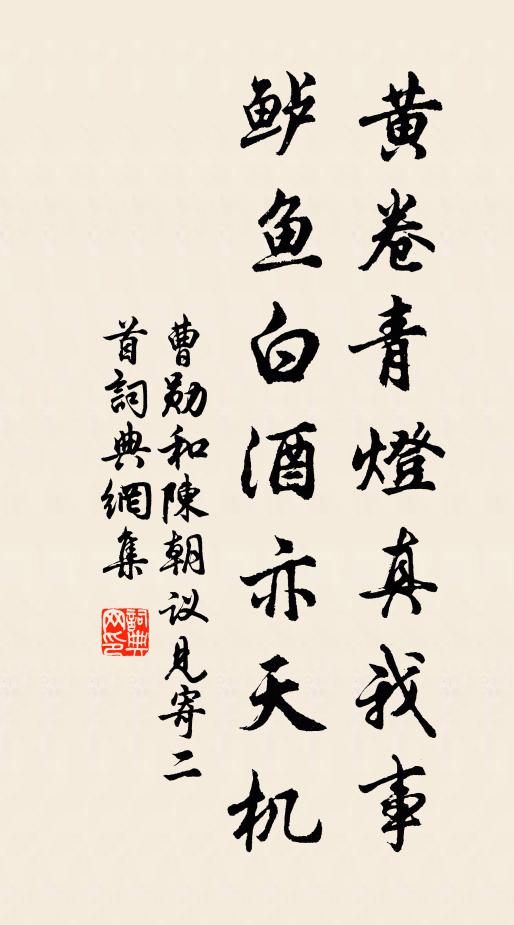 黄卷青燈真我事
鲈鱼白酒亦天机
曹勋和陳朝议見寄二
首詞典網集
詞典
网印